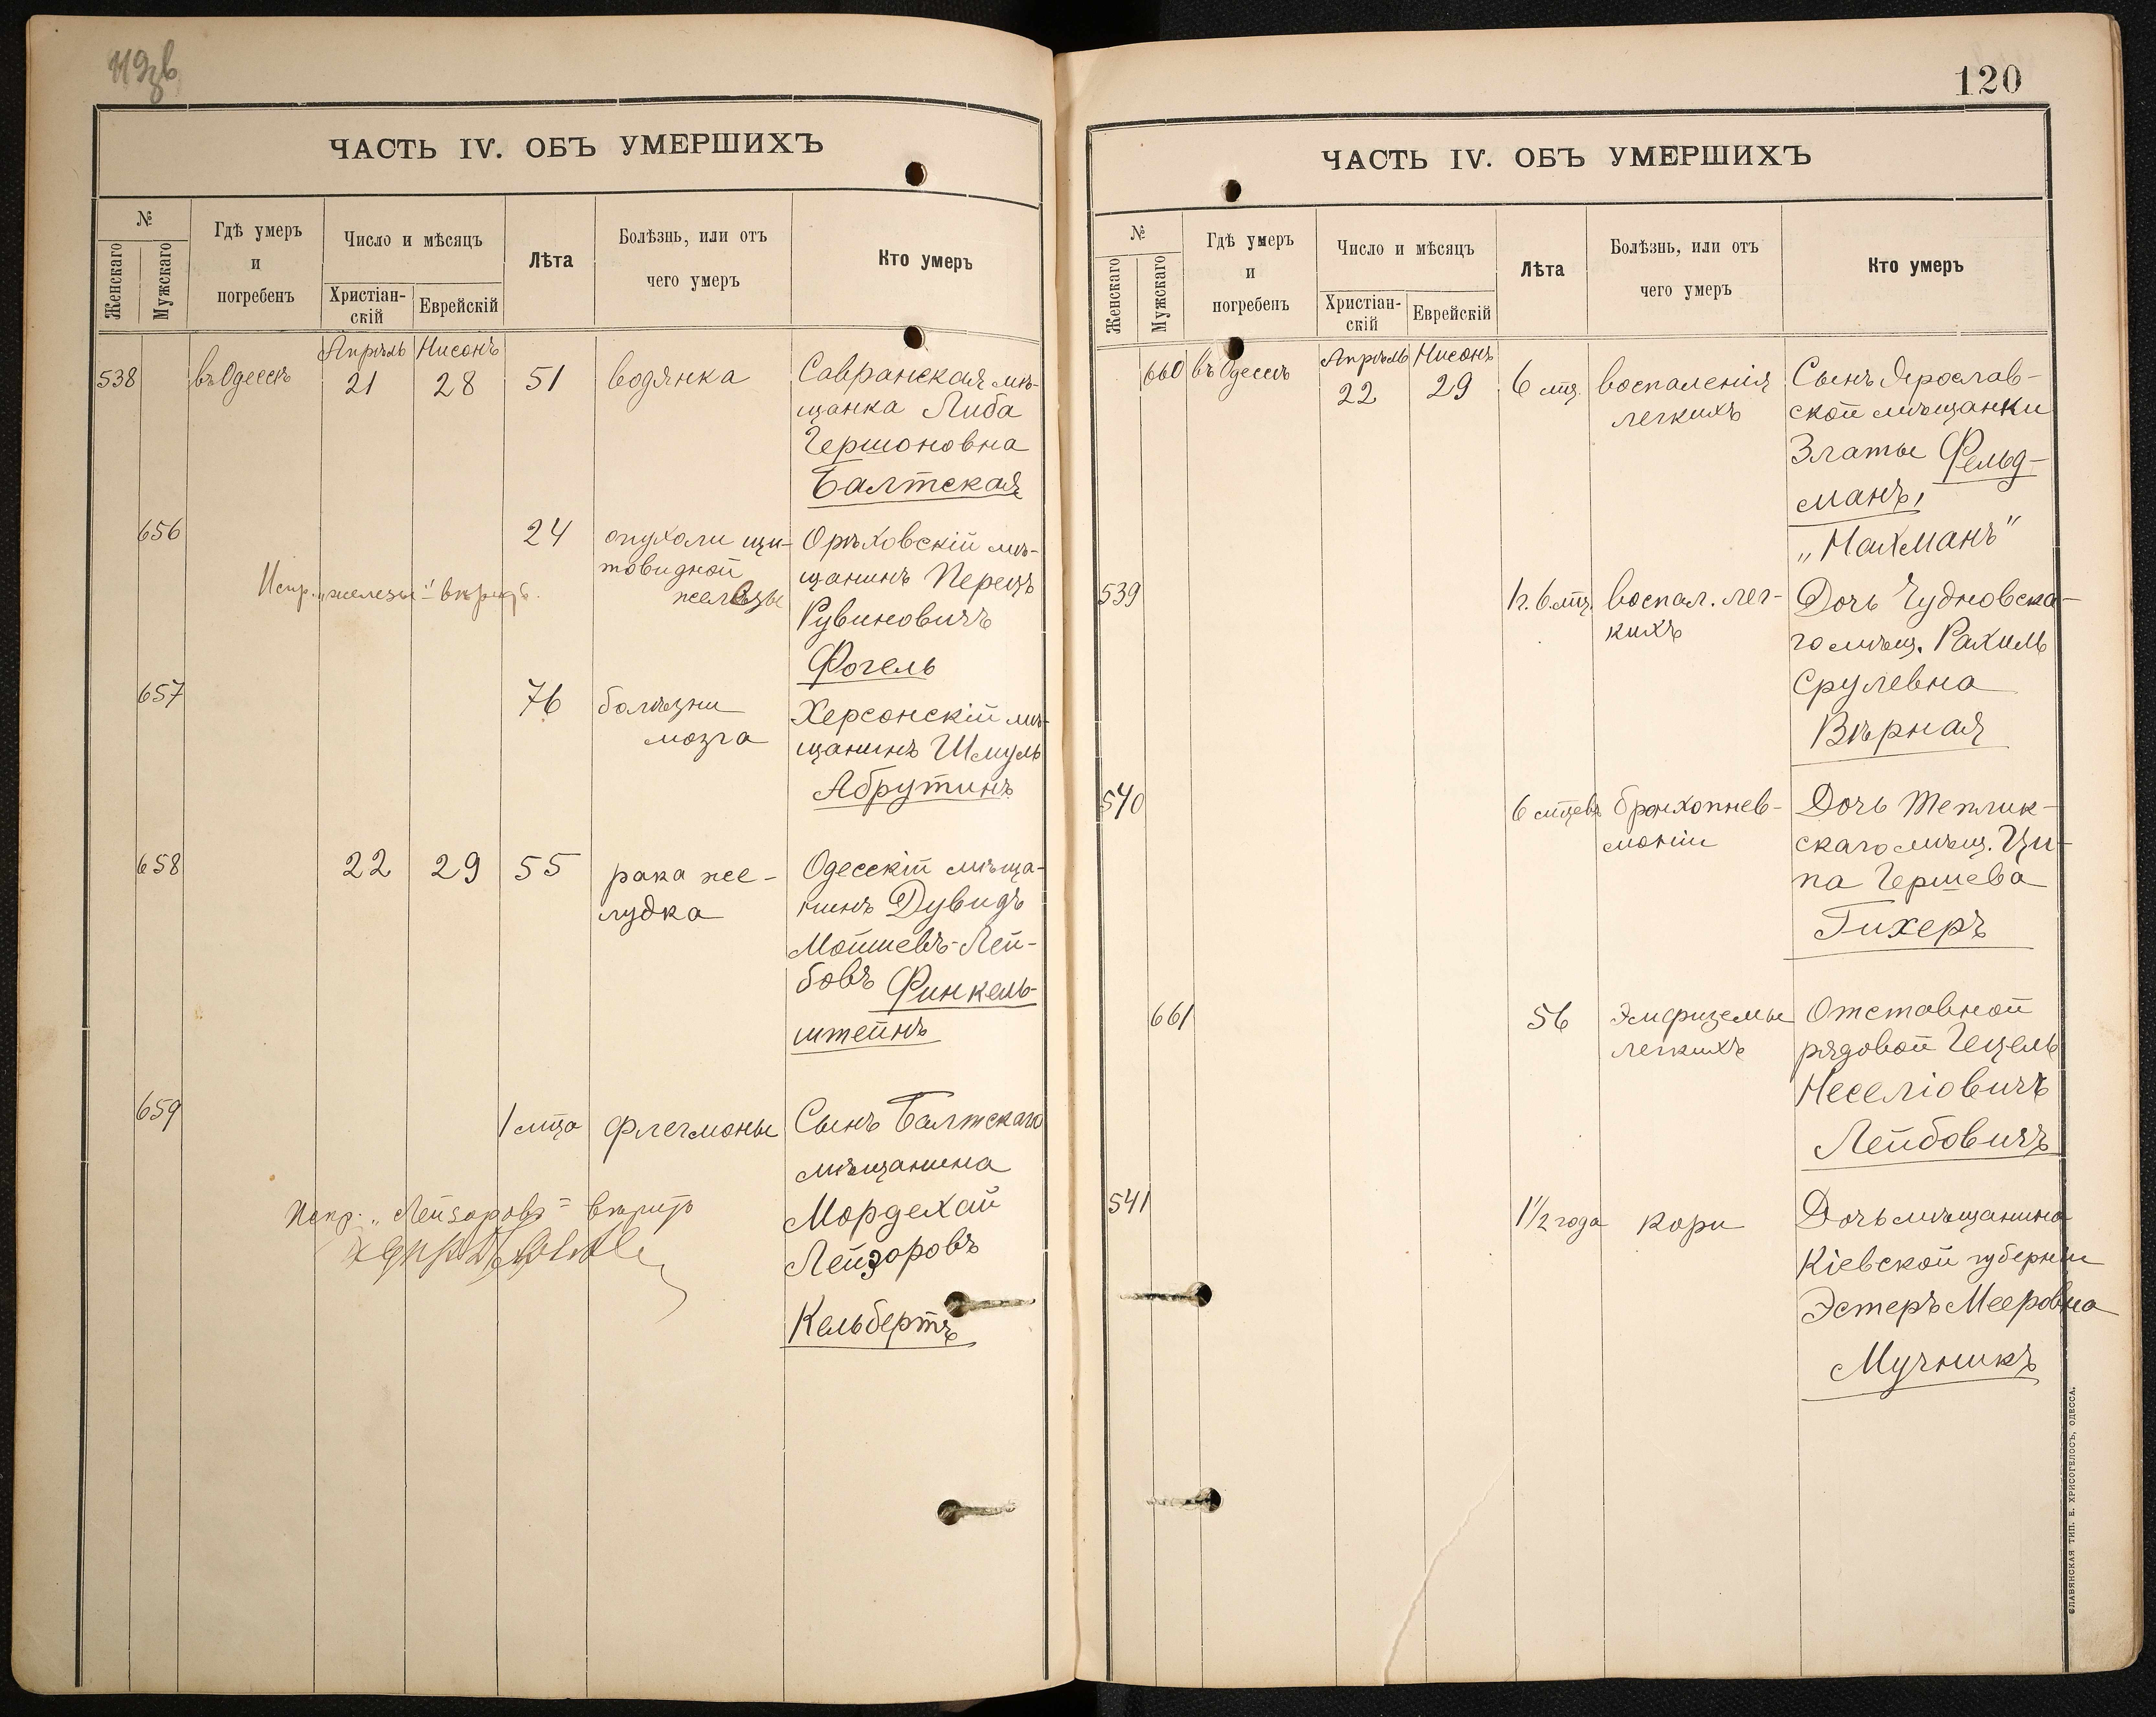 ЧАСТЬ IV. ОБЪ УМЕРШИХЪ
№
Женскаго
Мужскаго
Гдѣ умеръ
и
погребенъ
Число и мѣсяцъ
Христіан-
скій
Еврейскій
Лѣта
Болѣзнь, или отъ
чего умеръ
Кто умеръ
538 въ Одессѣ Апрѣль 21 Нисонъ 28 51 водянка Савранская мѣ-
щанка Либа
Гершоновна
Балтская
656 24 опухоли щи- Орѣховскій мѣ-
товидной щанинъ Перецъ
Испр. „железы" вѣрно. железы Рувиновичъ
Фогель
657 76 болѣзни Херсонскій мѣ-
мозга щанинъ Шмуль
Абрутинъ
658 22 29 55 рака же- Одесскій мѣща-
лудка нинъ Дувидъ
Мошкевъ-Лей-
бовъ Финкель-
штейнъ
659 1 мца флегмоны Сынъ Балтскаго
мѣщанина
Испр. „Лейзоровъ" вѣрно Мордехай
Лейзоровъ
Кельбертъ
120
ЧАСТЬ IV. ОБЪ УМЕРШИХЪ
№
Женскаго
Мужскаго
Гдѣ умеръ
и
погребенъ
Число и мѣсяцъ
Христіан-
скій
Еврейскій
Лѣта
Болѣзнь, или отъ
чего умеръ
Кто умеръ
660 въ Одессѣ Апрѣль 22 Нисонъ 29 6 мц. воспаленія Сынъ Ярослав-
легкихъ ской мѣщанки
Златы Фельд-
манъ,
„Нахманъ"
539 1 г. 6 мц. воспал. лег- Дочь Чудновска-
кихъ го мѣщ. Рахиль
Срулевна
Вѣрная
540 6 мцевъ бронхопнев- Дочь Теплик-
моніи скаго мѣщ. Ци-
па Гершева
Гихеръ
661 56 Эмфиземы Отставной
легкихъ рядовой Гецель
Неселіовичъ
Лейбовичъ
541 1 1/2 года кори Дочь мѣщанина
Кіевской губерніи
Эстеръ Мееровна
Мучникъ
СЛАВЯНСКАЯ ТИП. Е. ХРИСОГЕЛОСЪ, ОДЕССА.